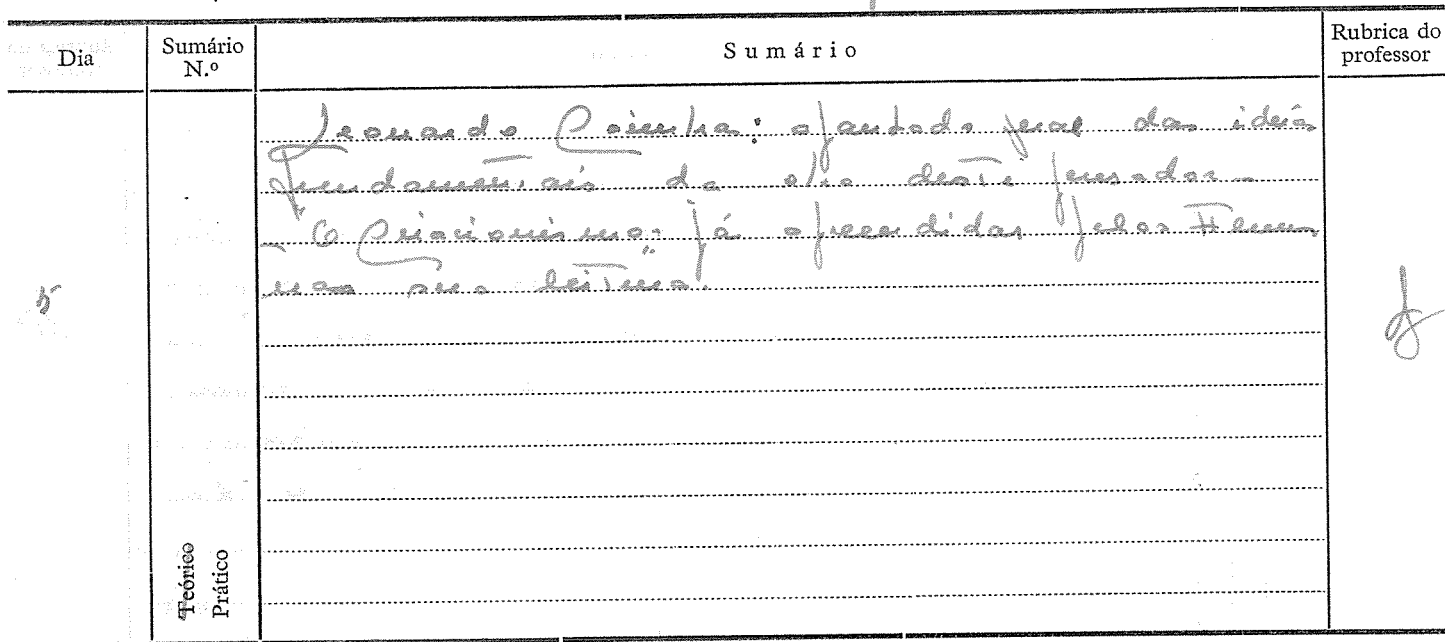 Dia Sumário N.º Sumário Rubrica do professor
Leonardo Coimbra: apanhado geral das ideias
fundamentais da obra deste pensador -
"O Criacionismo" já apreendidas pelos alunos
na sua leitura.
5
Teórico
Prático